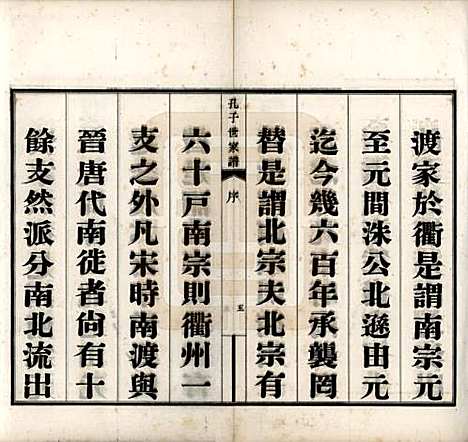 渡家於衢是謂南宗元
至元間洙公北遜由元
迄今幾六百年承襲罔
替是謂北宗夫北宗有
孔子世家譜
序
五
六十戸南宗則衢州一
支之外凡宋時南渡與
晉唐代南徙者尙有十
餘支然派分南北流出